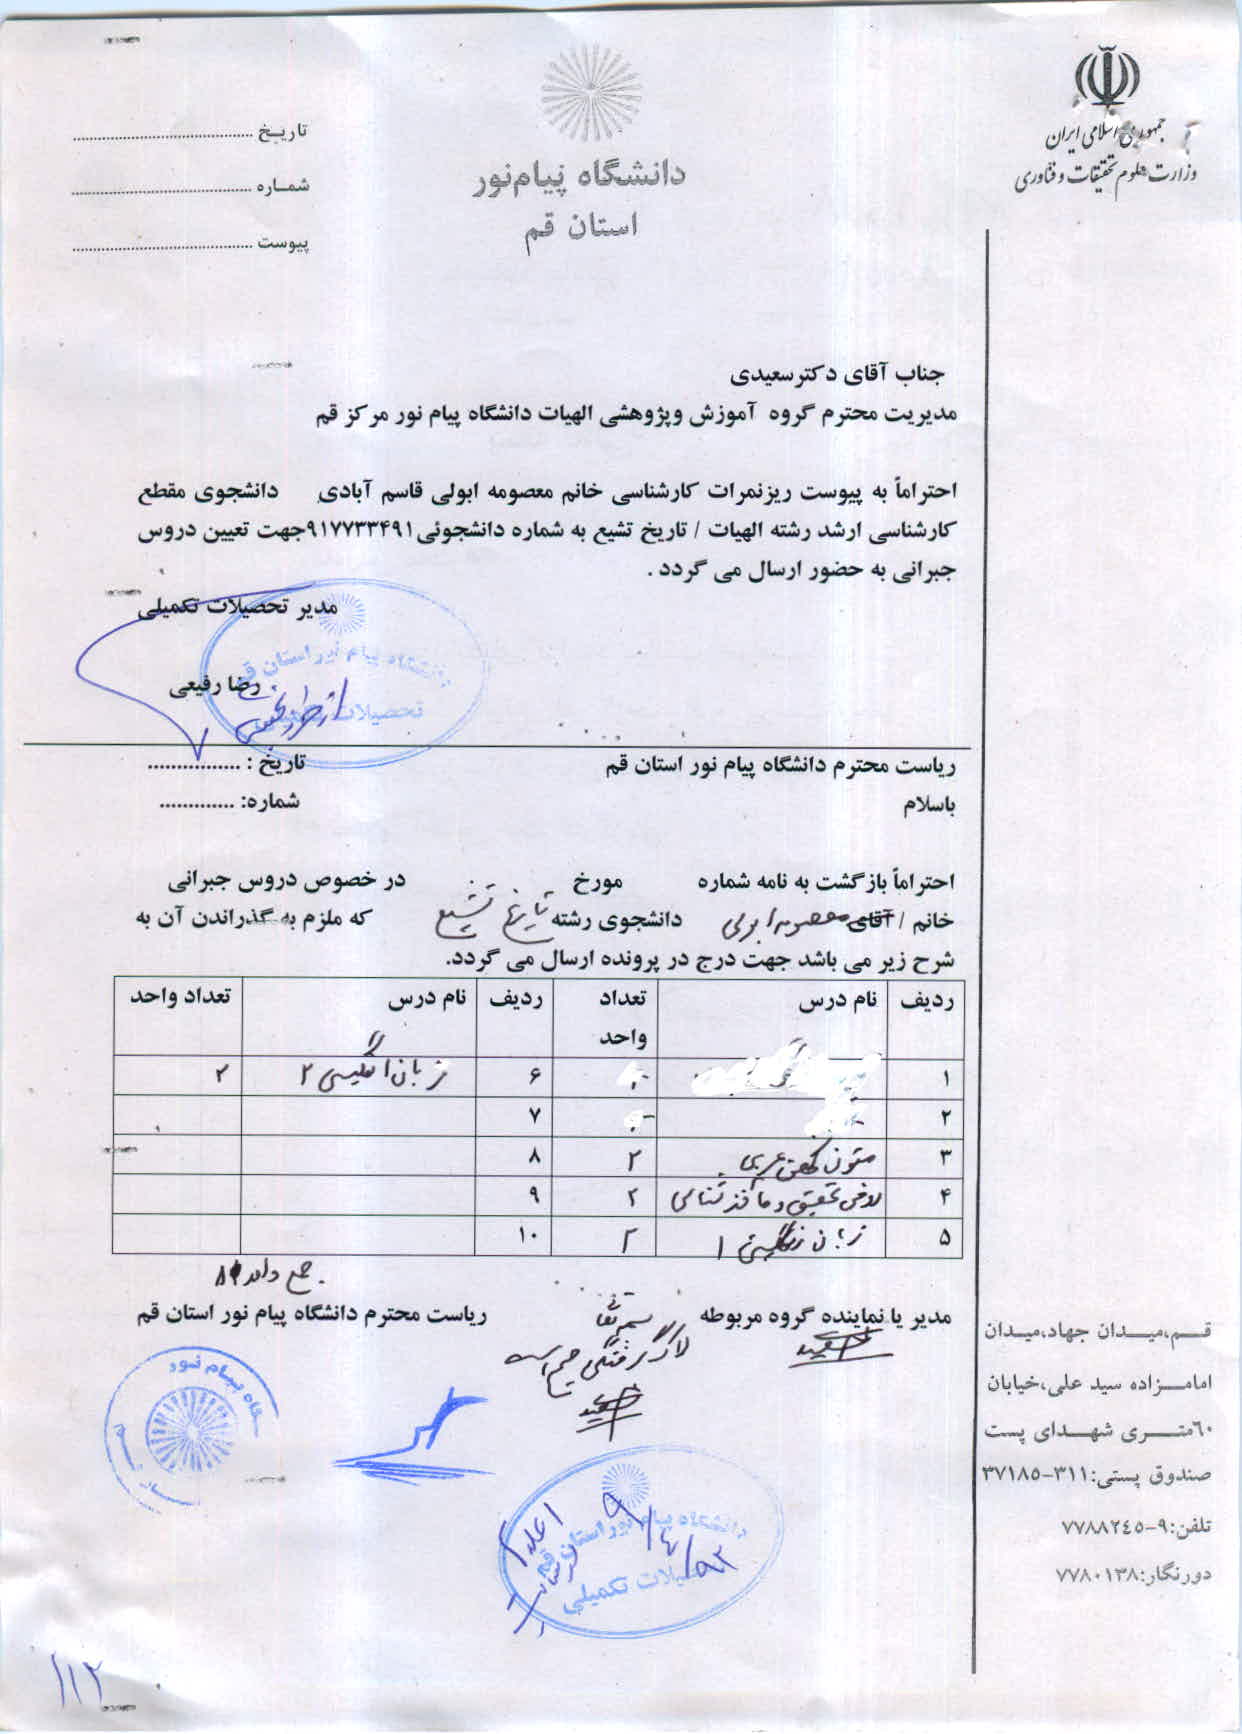 جمهوری اسلامی ایران
وزارت علوم تحقیقات و فناوری
دانشگاه پیام‌نور
استان قم
تاریخ ........................................
شماره ........................................
پیوست ........................................
جناب آقای دکترسعیدی
مدیریت محترم گروه آموزش وپژوهشی الهیات دانشگاه پیام نور مرکز قم
احتراماً به پیوست ریزنمرات کارشناسی خانم معصومه ابولی قاسم آبادی دانشجوی مقطع
کارشناسی ارشد رشته الهیات / تاریخ تشیع به شماره دانشجوئی۹۱۷۷۳۳۴۹۱جهت تعیین دروس
جبرانی به حضور ارسال می گردد .
مدیر تحصیلات تکمیلی
دانشگاه پیام نور استان قم
رضا رفیعی
تحصیلات تکمیلی
ریاست محترم دانشگاه پیام نور استان قم تاریخ : ................
باسلام شماره: .............
احتراماً بازگشت به نامه شماره مورخ در خصوص دروس جبرانی
خانم / آقای معصومه ابولی دانشجوی رشته تاریخ تشیع که ملزم به گذراندن آن به
شرح زیر می باشد جهت درج در پرونده ارسال می گردد.
ردیف نام درس تعداد واحد ردیف نام درس تعداد واحد
۱ ۶ زبان انگلیسی ۲ ۲
۲ ۷
۳ متون کهن عربی ۲ ۸
۴ روش تحقیق و مأخذشناسی ۲ ۹
۵ زبان انگلیسی ۱ ۲ ۱۰
جمع واحد ۸
مدیر یا نماینده گروه مربوطه ریاست محترم دانشگاه پیام نور استان قم
دانشگاه پیام نور
دانشگاه پیام نور استان قم
تحصیلات تکمیلی
۹/۴/۹۲
قم،میدان جهاد،میدان
امامزاده سید علی،خیابان
۶۰متری شهدای پست
صندوق پستی:۳۱۱-۳۷۱۸۵
تلفن:۹-۷۷۸۸۲۴۵
دورنگار:۷۷۸۰۱۳۸
۱۱۲